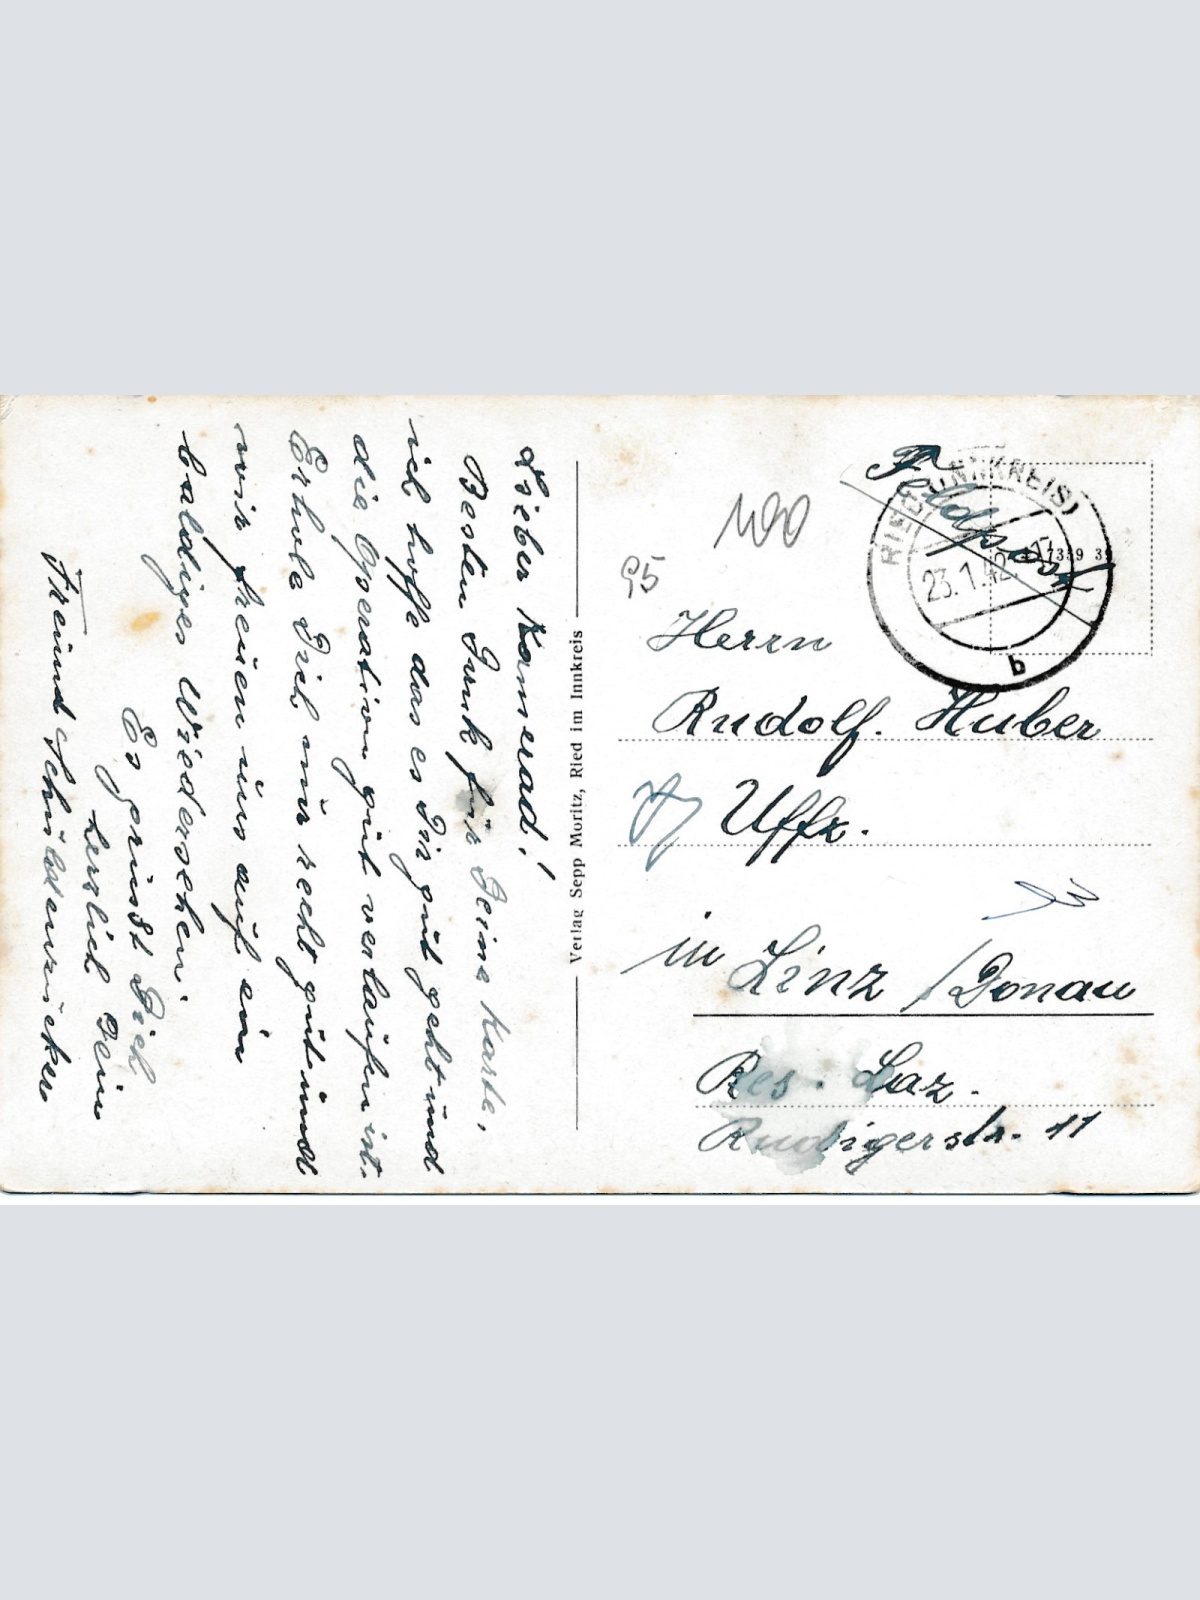 Lieber Kamerad!
Besten Dank für Deine Karte,
ich hoffe das es Dir gut geht und
die Operation gut verlaufen ist.
Erhole Dich nur recht gut und
wir freuen uns auf ein
baldiges Wiedersehen.
Es grüßt Dich
herzlich Dein
Freund
Verlag Sepp Moritz, Ried im Innkreis
Feldpost
RIED (INNKREIS)
23.1.42
b
100
95
Herrn
Rudolf. Huber
Uffz.
in Linz /Donau
Res. Laz.
Rudigerstr. 11